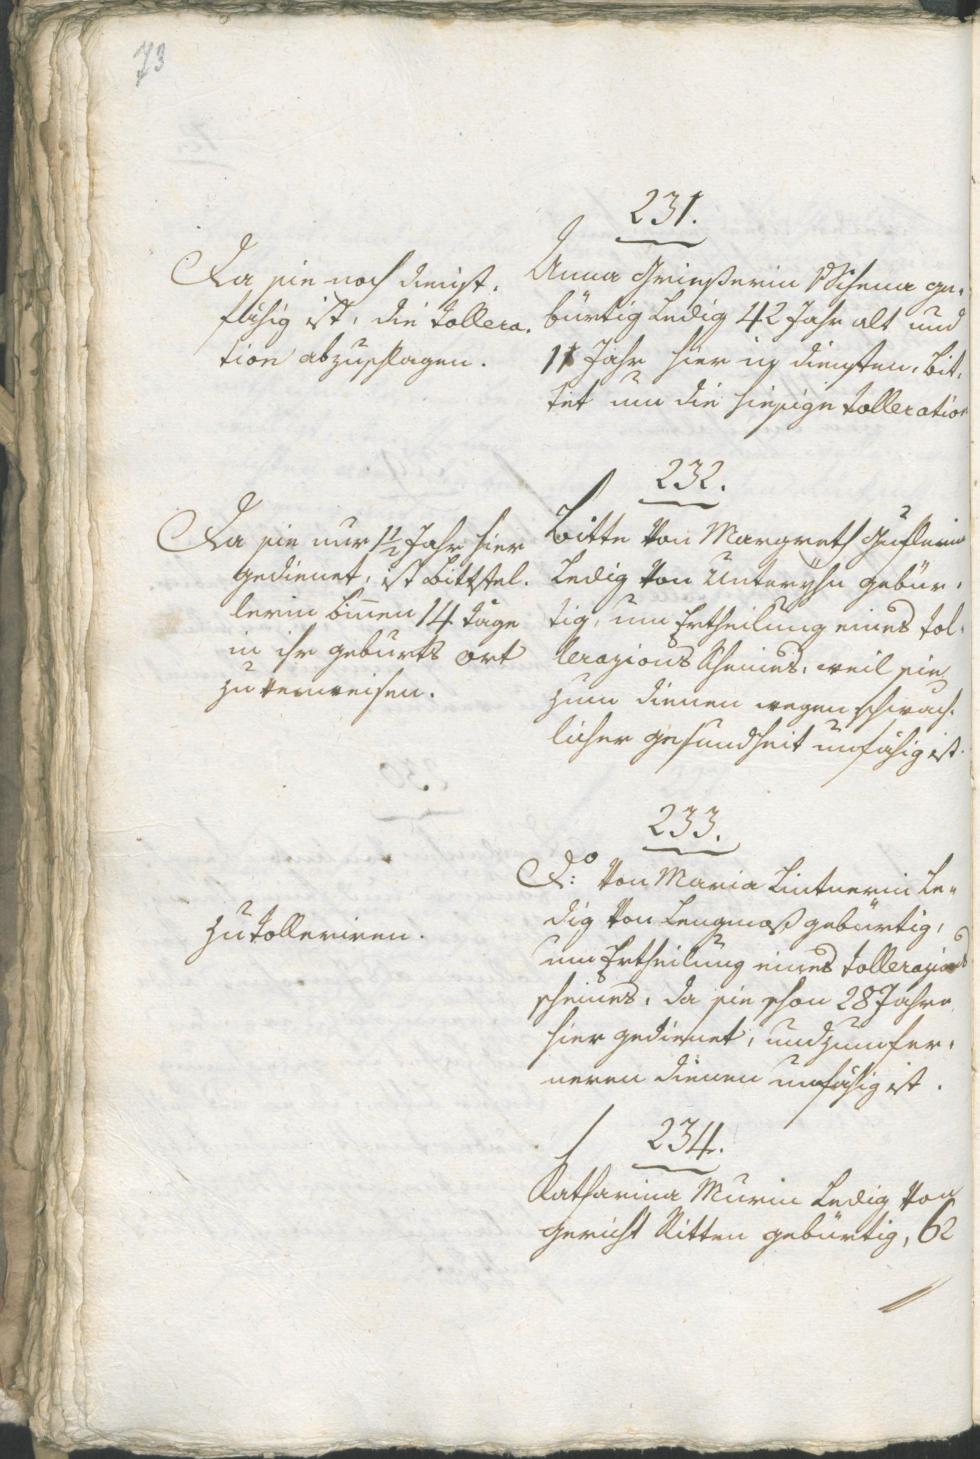 73
231.
Da sie noch dienst-
fähig ist, die Tollera-
tion abzuschlagen.
Anna Grießerin Schena ge-
bürtig Ledig 42 Jahr alt und
11 Jahr hier in diensten, bit-
tet um die hiesige Tolleration
232.
Da sie nur 1½ Jahr hier
gedienet, ist Bittstel-
lerin binen 14 täge
in ihr geburts Ort
zu verweisen.
Bitte von Margreth
Ledig von Unterÿhn gebür-
tig, um Ertheilung eines Tol-
lerazions Scheines, weil sie
zum dienen wegen schwäch-
licher gesundheit unfähig ist.
233.
zu Tolleriren.
D:o von Maria Lintnerin Le-
dig von Lengmoß gebürtig,
um Ertheilung eines Tollerazions
scheines, da sie schon 28 Jahre
hier gedienet, und zum fer-
neren dienen unfähig ist.
234.
Katharina Murin Ledig von
gericht Ritten gebürtig, 62